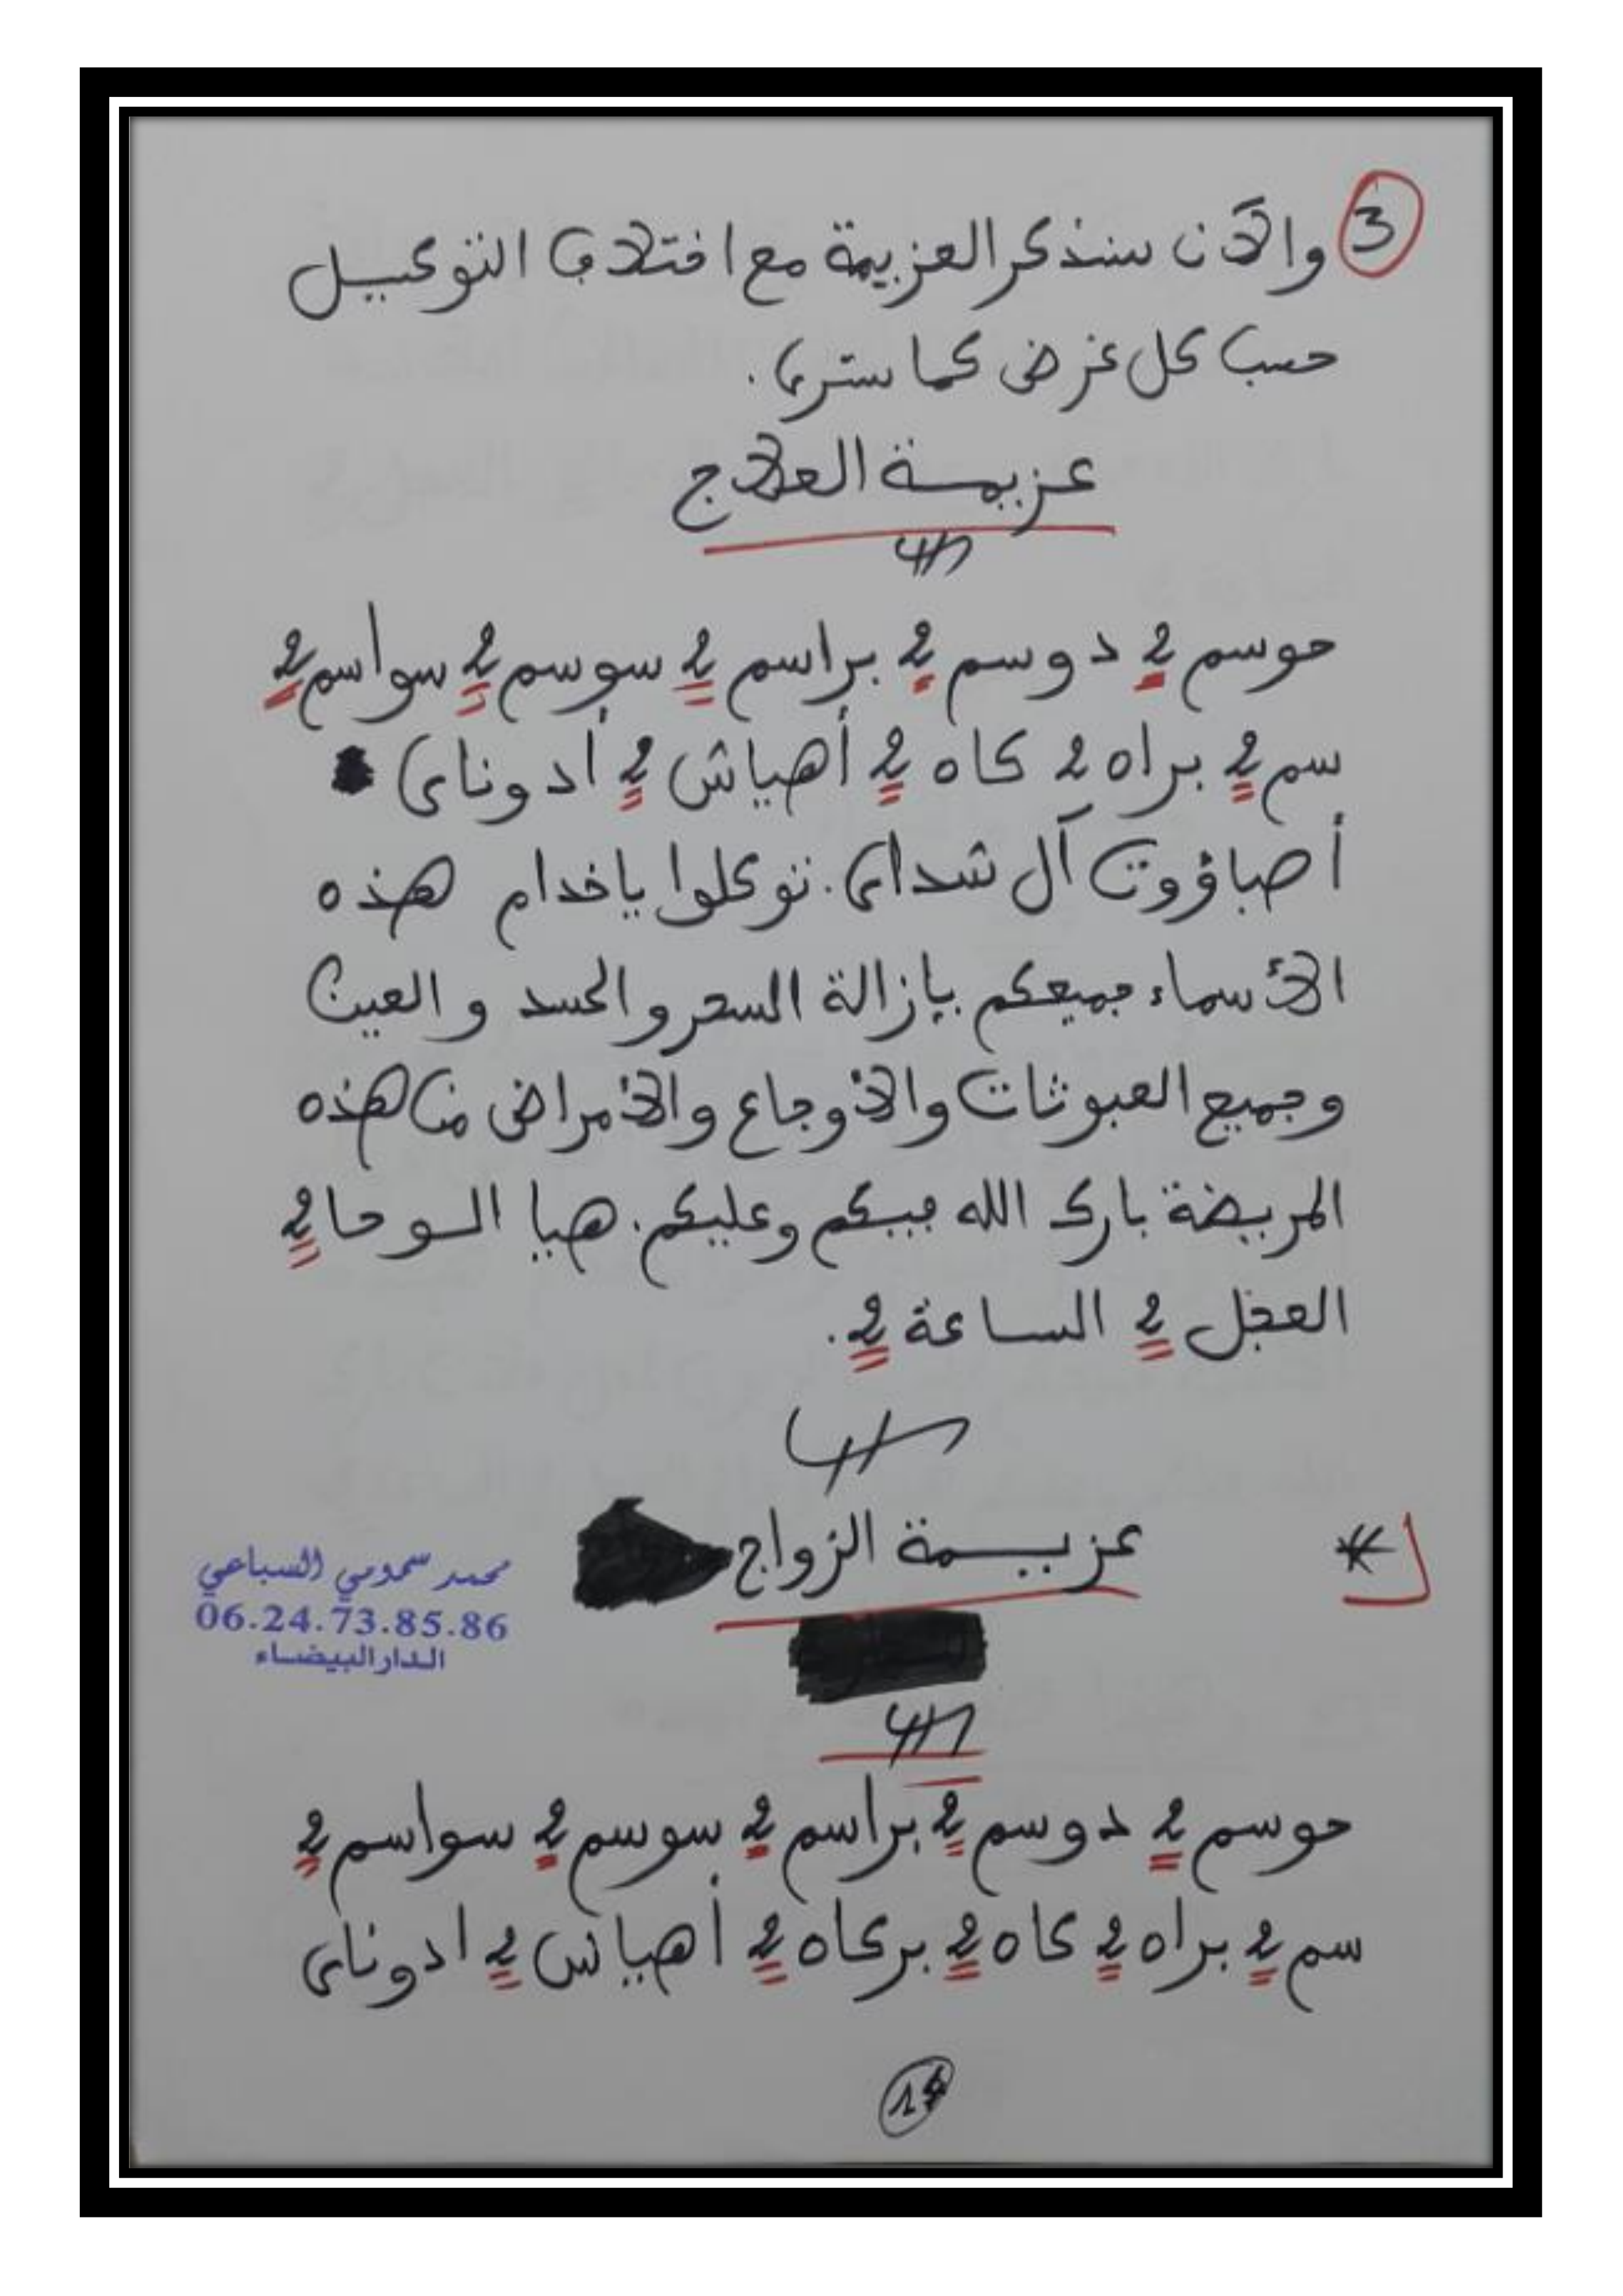 3 والآن سنذكر العزيمة مع اختلاف التوكيل
حسب كل غرض كما سترى.
عزيمة العلاج
حوسم 2 دوسم 2 براسم 2 سوسم 2 سواسم 2
سم 2 براه 2 كاه 2 أهياش 2 أدوناى
أصباؤوت آل شداى. توكلوا ياخدام هذه
الأسماء جميعكم بإزالة السحر والحسد والعين
وجميع العبوثات والأوجاع والأمراض من هذه
المريضة بارك الله فيكم وعليكم. هيا الوحا 2
العجل 2 الساعة 2.
* عزيمة الزواج
محمد سمومي السباعي
06.24.73.85.86
الدار البيضاء
حوسم 2 دوسم 2 براسم 2 سوسم 2 سواسم 2
سم 2 براه 2 كاه 2 بركاه 2 أهياش 2 ادوناى